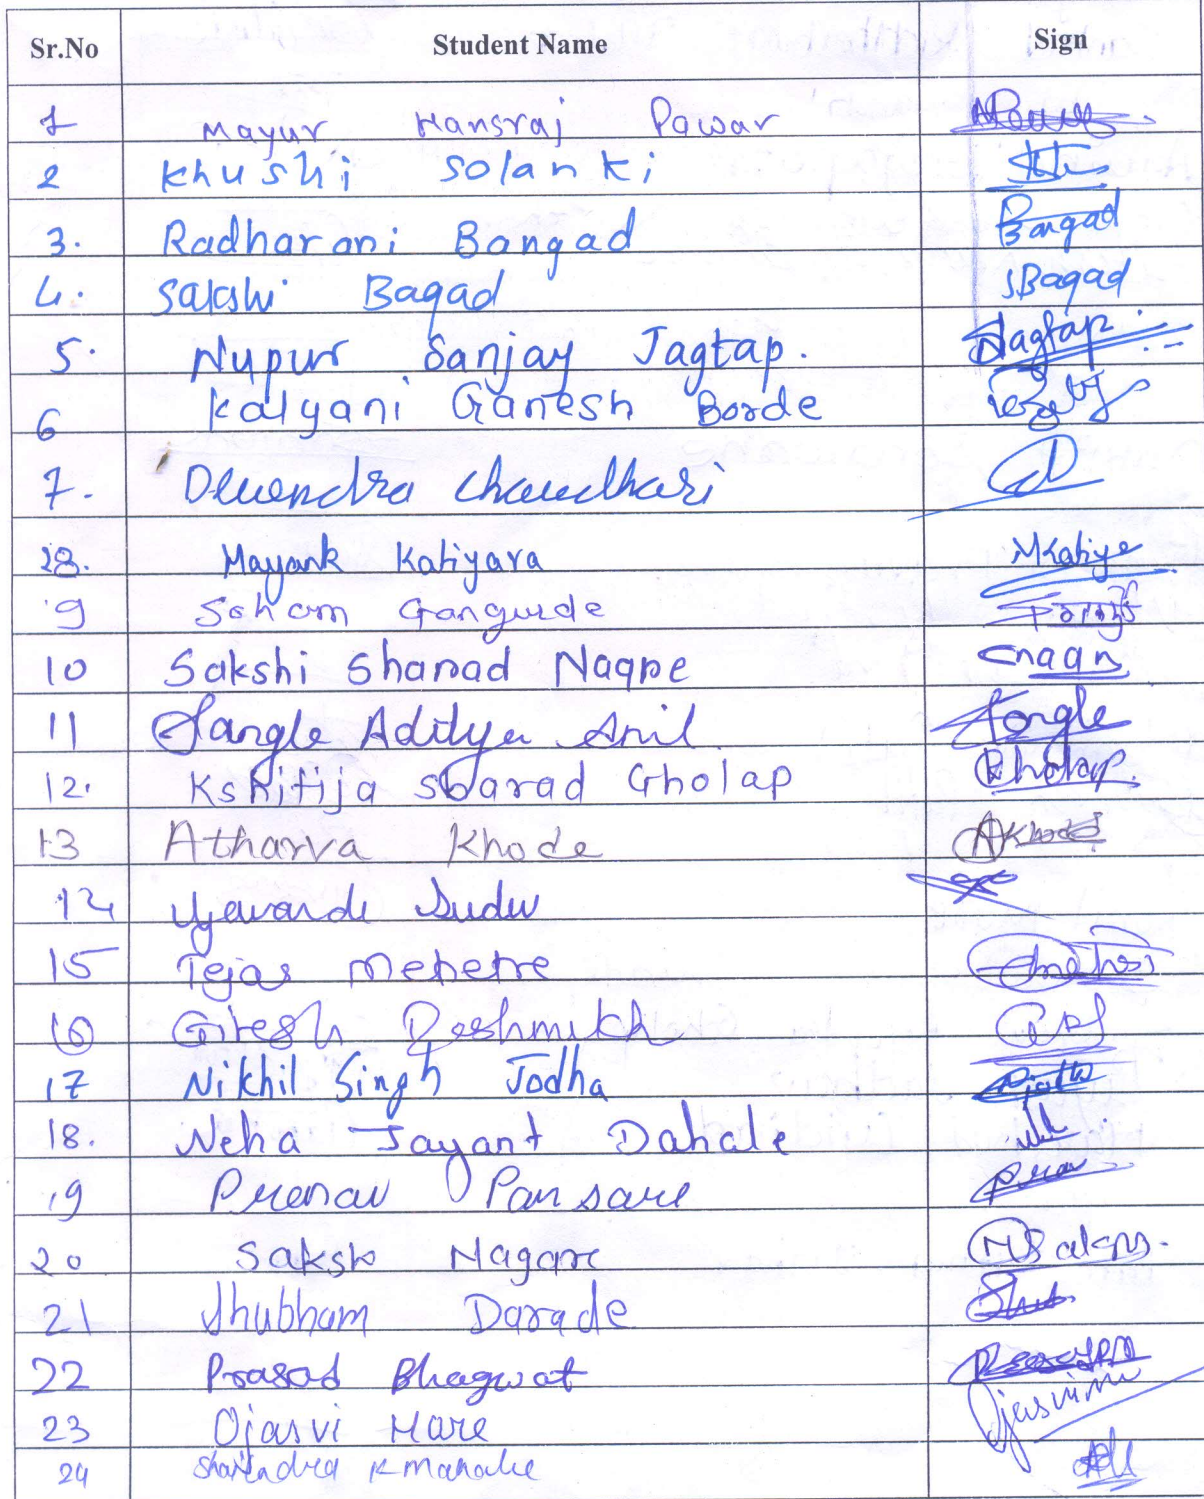 Sr.No Student Name Sign
1 Mayur Hansraj Pawar
2 Khushi Solanki
3. Radharani Bangad Bangad
4. Sakshi Bagad SBagad
5. Nupur Sanjay Jagtap. Jagtap.
6 Kalyani Ganesh Borde
7. Devendra Chaudhari
8. Mayank Katiyara MKatiye
9 Soham Gangurde
10 Sakshi Sharad Nagre
11 Sangle Aditya Anil Sangle
12. Kshitija Sharad Gholap Gholap.
13 Atharva Khode AKhode
14
15 Tejas Mehetre
16 Giresh Deshmukh
17 Nikhil Singh Jodha
18. Neha Jayant Dahale
19 Prenav Pansare
20 Saksh Nagare
21 Shubham Darade Shub
22 Prasad Bhagwat
23 Ojasvi More
24